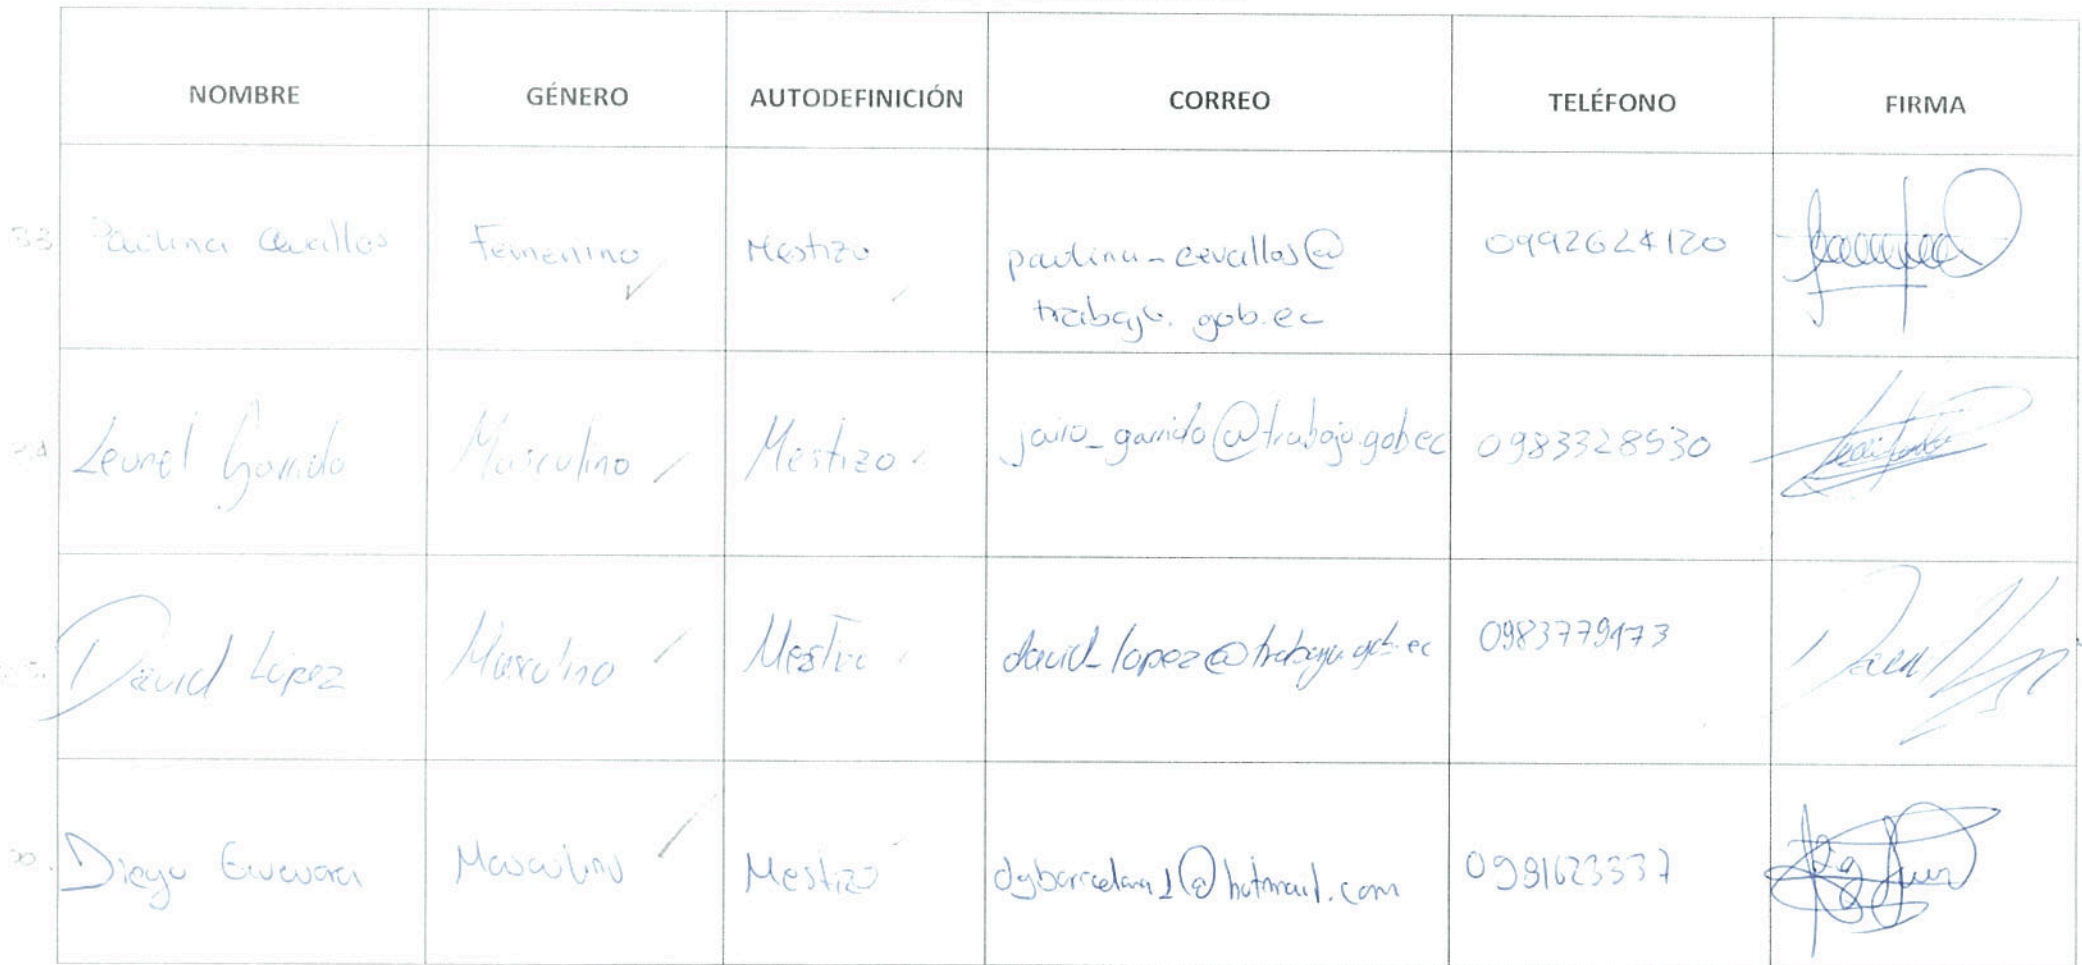 NOMBRE GÉNERO AUTODEFINICIÓN CORREO TELÉFONO FIRMA
33 Paulina Cevallos Femenino Mestizo paulina_cevallos@ 0992624120
trabajo.gob.ec
34 Leonel Garrido Masculino Mestizo jairo_garrido@trabajo.gob.ec 0983328530
David López Masculino Mestizo david_lopez@trabajo.gob.ec 0983779473
Diego Guevara Masculino Mestizo dgbarcelona1@hotmail.com 0981623337